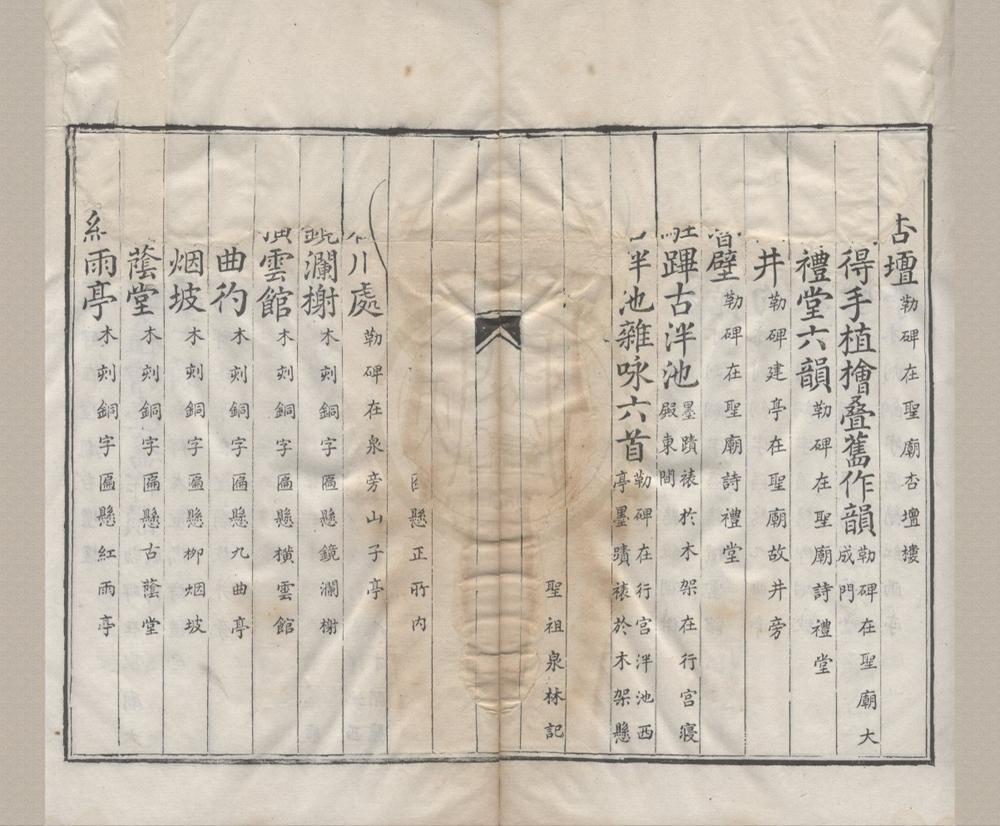 壇勒碑在聖廟杏壇樓
得手植檜叠舊作韻勒碑在聖廟大成門
禮堂六韻勒碑在聖廟詩禮堂
井勒碑建亭在聖廟故井旁
壁勒碑在聖廟詩禮堂
蹕古泮池墨蹟裱於木架在行宮寢殿東間
半池雜咏六首勒碑在行宮泮池西亭墨蹟裱於木架懸
聖祖泉林記
懸正所內
川處勒碑在泉旁山子亭
瀾榭木刻銅字匾懸鏡瀾榭
雲館木刻銅字匾懸横雲館
曲彴木刻銅字匾懸九曲亭
烟坡木刻銅字匾懸柳烟坡
蔭堂木刻銅字匾懸古蔭堂
雨亭木刻銅字匾懸紅雨亭